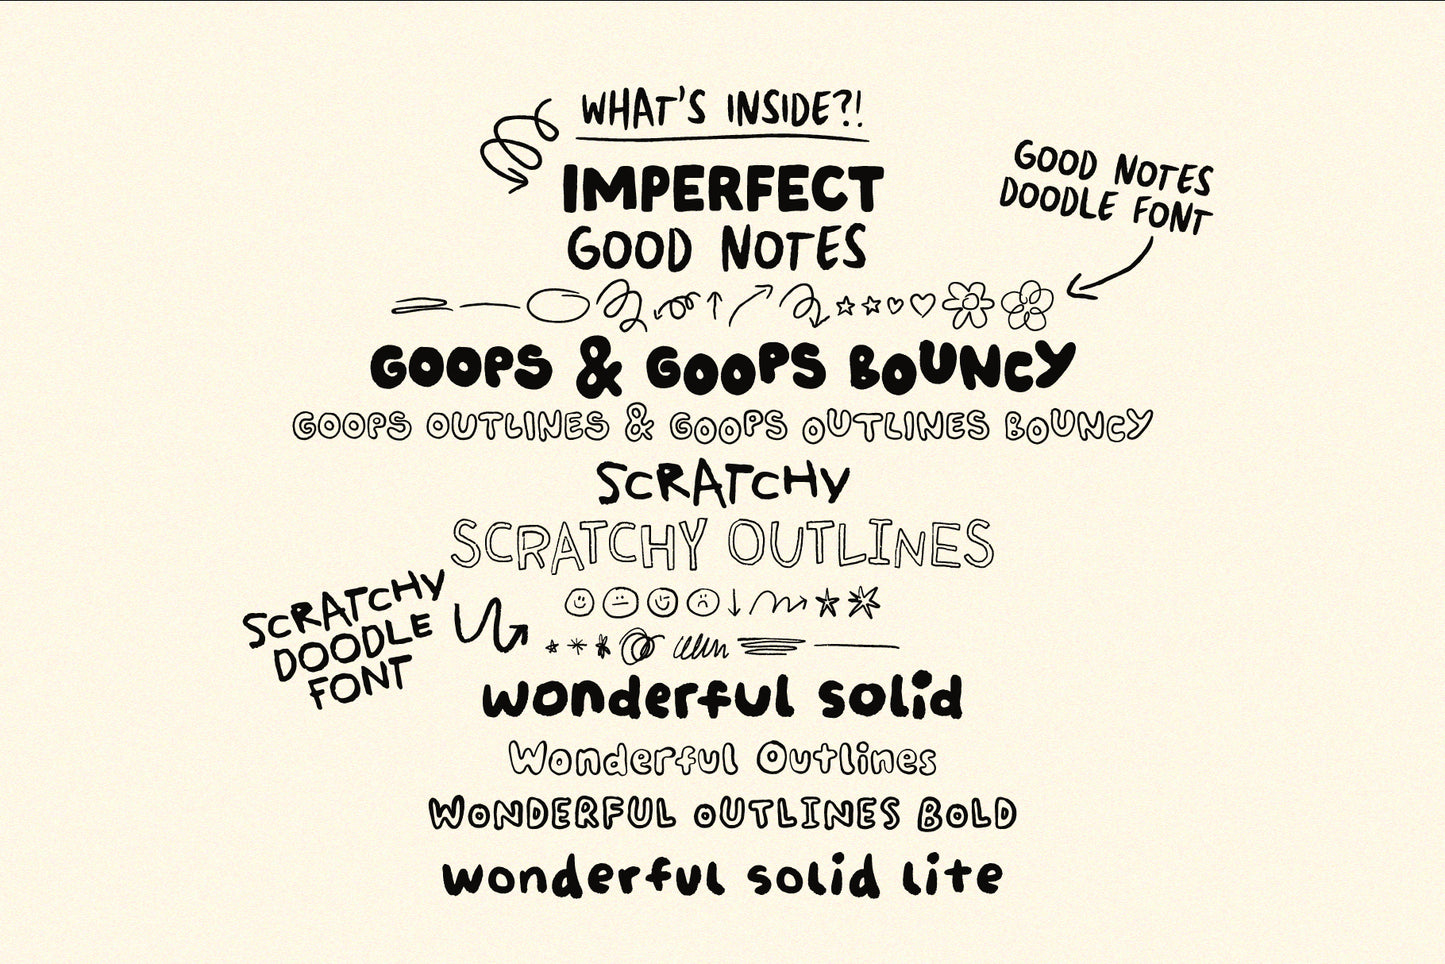 WHAT'S INSIDE?!
IMPERFECT
GOOD NOTES
GOOD NOTES
DOODLE FONT
GOOPS & GOOPS BOUNCY
GOOPS OUTLINES & GOOPS OUTLINES BOUNCY
SCRATCHY
SCRATCHY OUTLINES
SCRATCHY
DOODLE
FONT
wonderful solid
Wonderful Outlines
WONDERFUL OUTLINES BOLD
wonderful solid lite